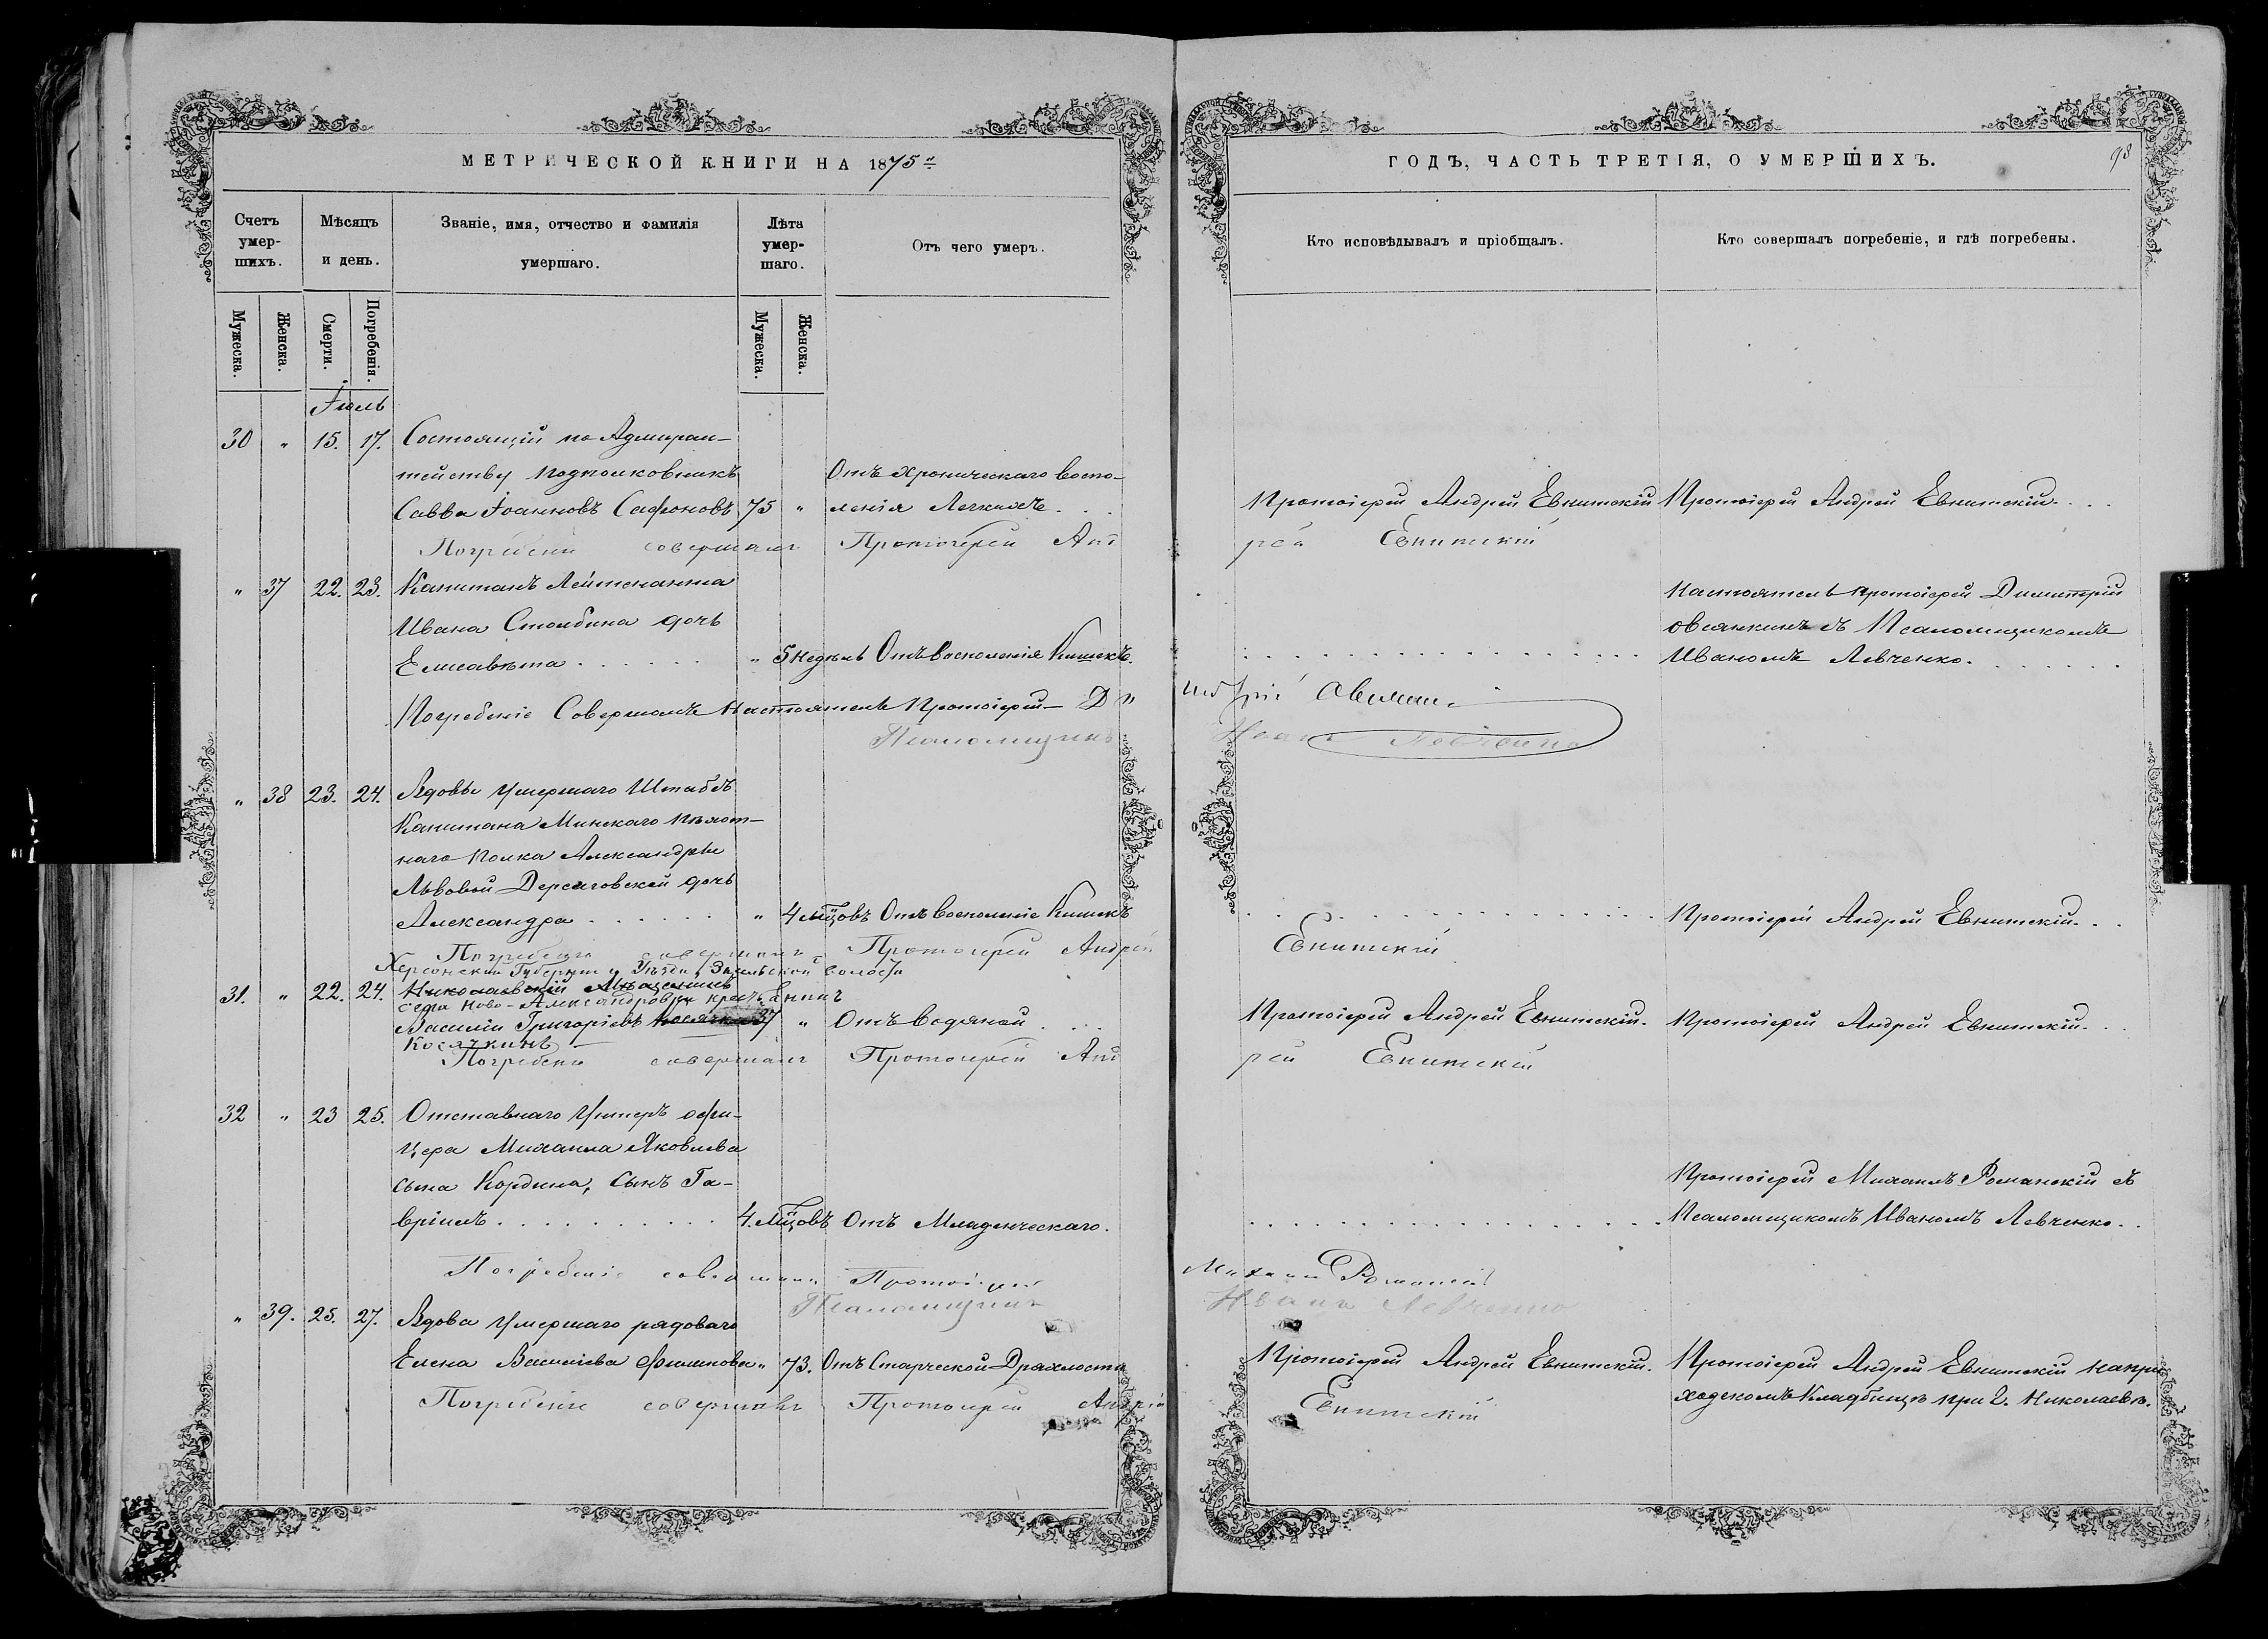 МЕТРИЧЕСКОЙ КНИГИ НА 1875й
ГОДЪ, ЧАСТЬ ТРЕТІЯ, О УМЕРШИХЪ.
98
Счетъ умер-шихъ.
Мѣсяцъ и день.
Званіе, имя, отчество и фамилія умершаго.
Лѣта умер-шаго.
Отъ чего умеръ.
Кто исповѣдывалъ и пріобщалъ.
Кто совершалъ погребеніе, и гдѣ погребены.
Мужеска.
Женска.
Смерти.
Погребенія.
Мужеска.
Женска.
Іюль
30 " 15. 17. Состоящій по Адмирал-
тейству подполковникъ
Савва Іоанновъ Сафоновъ 75 "
Отъ хроническаго воспо-
ленія Легкихъ. . .
Протоіерей Андрей Евнитскій
Протоіерей Андрей Евнитскій. . .
Погребеніе совершалъ Протоіерей Анд
рей Евнитскій
" 37 22. 23. Капитанъ Лейтенанта
Ивана Столбина дочь
Елисавета . . . . . . " 5 недѣль Отъ Восполенія Кишекъ.
Настоятель протоіерей Димитрій
Овсянкинъ съ Псаломщикомъ
Иваномъ Левченко. . . . . . .
Погребеніе Совершалъ Настоятель Протоіерей Д
Псаломщикъ
Иванъ Левченко
" 38 23. 24. Вдовы умершаго Штабсъ
Капитана Минскаго пѣхот-
наго полка Александры
Львовой дочь
Александра . . . . . . " 4 мцовъ Отъ восполеніе Кишекъ
Протоіерей Андрей Евнитскій. . .
Погребеніе совершалъ Протоіерей Андрей
Евнитскій
Херсонской Губерніи и Уѣзда, волости
31. " 22. 24. Николаевскій Мѣщанинъ
села Ново-Александровки крестьянинъ
Василій Григорьевъ 37 " Отъ водяной . . .
Косячкинъ
Протоіерей Андрей Евнитскій.
Протоіерей Андрей Евнитскій. . .
Погребеніе совершалъ Протоіерей Анд
рей Евнитскій
32 " 23 25. Отставнаго Унтеръ офи-
цера Михаила Яковлева
сына Кордина, сынъ Га-
вріилъ . . . . . . . . . 4. мцовъ Отъ Младенческаго.
Протоіерей Михаилъ Романскій съ
Псаломщикомъ Иваномъ Левченко. .
Погребеніе совершалъ Протоіерей
Михаилъ Романскій
Псаломщикъ
Иванъ Левченко
" 39. 25. 27. Вдова умершаго рядоваго
Елена Василіева Филипова " 73. Отъ Старческой Дряхлости
Протоіерей Андрей Евнитскій.
Протоіерей Андрей Евнитскій на при
ходскомъ Кладбищѣ при г. Николаевѣ.
Погребеніе совершалъ Протоіерей Андрей
Евнитскій